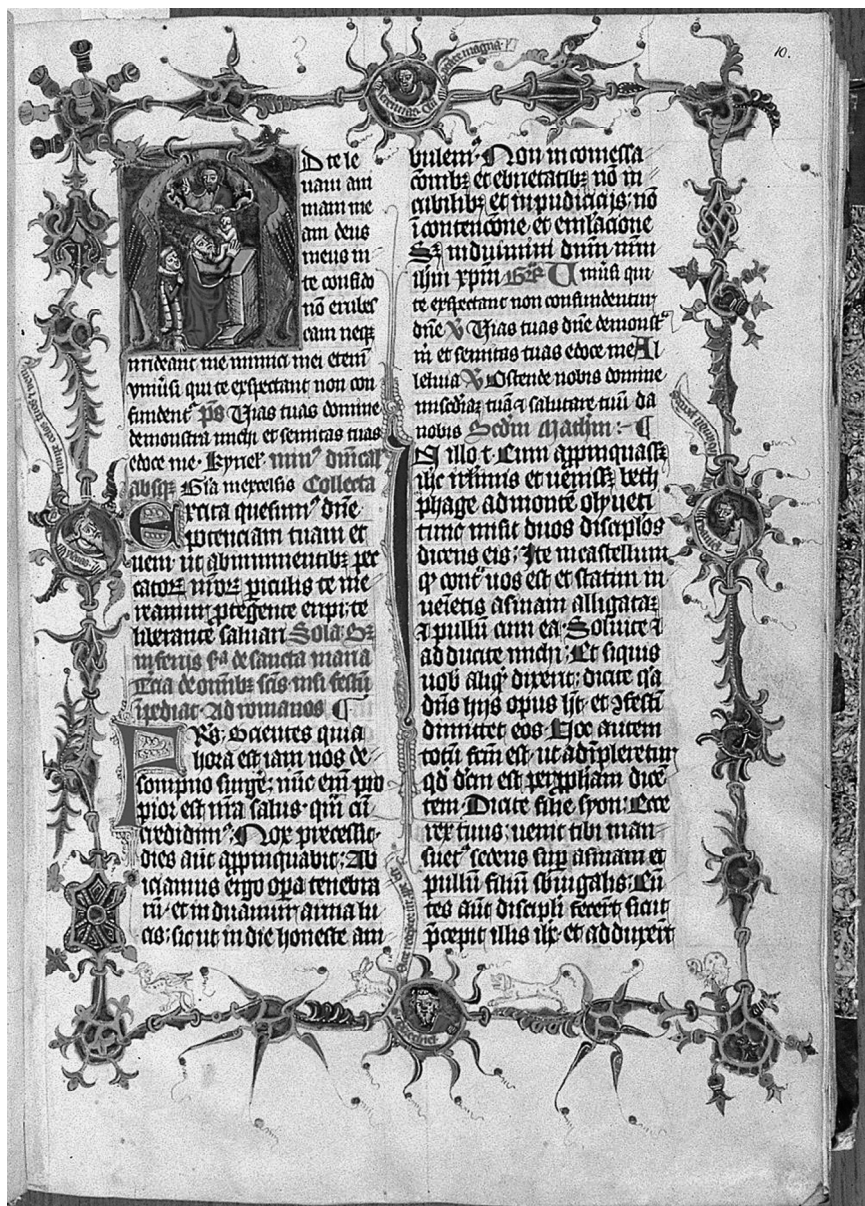 10.
D te le
uaui ani
mam me
am deus
meus in
te confido
nō erubes
cam neqꝫ
irrideant me inimici mei etenī
vniūsi qui te exspectant non con
fundentʳ p̄s Uias tuas domine
demonstra michi et semitas tuas
edoce me · kyriel · minꝰ dn̄ical
absqꝫ Gl̄a inexcelsis Collecta
Excita quesumꝰ dn̄e
potenciam tuam et
ueni ut ab imminentibꝫ pec
catorꝫ nr̄orꝫ piculis te me
reamur ꝓtegente eripi · te
liberante saluari Sola
de sancta maria
Tcia de om̄ibꝫ scīs nisi festū
īpediat · Ad romanos
Rs̄ · Scientes quia
hora est iam nos de
sompno surgē · nūc em̄ pro
pior est nr̄a salus · qm̄ cū
credidimꝰ · Nox precessit ·
dies aūt appinquabit · Ab
iciamus ergo opa tenebra
rū · et induamur arma lu
cis · sicut in die honeste am
bulemꝰ · Non in comessa
cōnibꝫ et ebrietatibꝫ nō in
cubilibꝫ et inpudicicijs · nō
ī contencōne et emlacione
Sꝫ induimini dn̄m nr̄m
ih̄m xp̄m Uniūsi qui
te exspectant non confundentur
dn̄e ℣ Uias tuas dn̄e demonstª
m̄ et semitas tuas edoce me Al
leluia ℣ Ostende nobis domine
misc̄diaꝫ tuā ⁊ salutare tuū da
nobis Scd̄m Math̄m
N illo t̄ · Cum appinquassꝫ
ih̄c ih̄rlimis et uenissꝫ beth
phage ad montē olyueti
tunc misit duos discip̄los
dicens eis · Ite in castellum
qͦ contª uos est et statim in
ueīetis asinam alligataꝫ
⁊ pullū cum ea · Soluite ⁊
adducite michi · Et siquis
uob̄ aliqͥ dixerit · dicite qª
dn̄s hijs opus h̄t · et ꝯfestī
dimittet eos · Hoc autem
totū fcm̄ est · ut adīpleretur
qd̄ dc̄m est per ꝓph̄am dicē
tem Dicite filie syon · Ecce
rex tuus · uenit tibi man
suetꝰ sedens suꝑ asinam et
pullū filiū sb̄iugalis · Eū
tes aūt discipl̄i fecerūt sicut
p̄cepit illis ih̄c · et adduxerūt